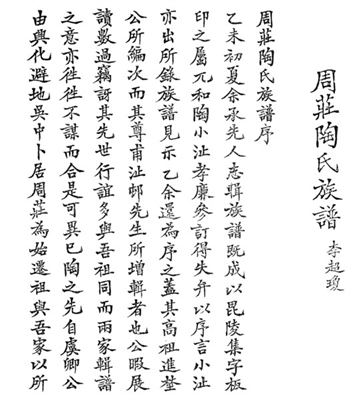 周莊陶氏族譜
李超瓊
周莊陶氏族譜序
乙未初夏余承先人志輯族譜既成以毘陵集字板
印之屬元和陶小沚孝廉參訂得失弁以序言小沚
亦出所錄族譜見示乙余還為序之蓋其高祖進埜
公所編次而其尊甫沚邨先生所增輯者也公暇展
讀數過竊訝其先世行誼多與吾祖同而兩家輯譜
之意亦徃徃不謀而合是可異已陶之先自虞卿公
由興化避地吳中卜居周莊為始遷祖與吾家以所